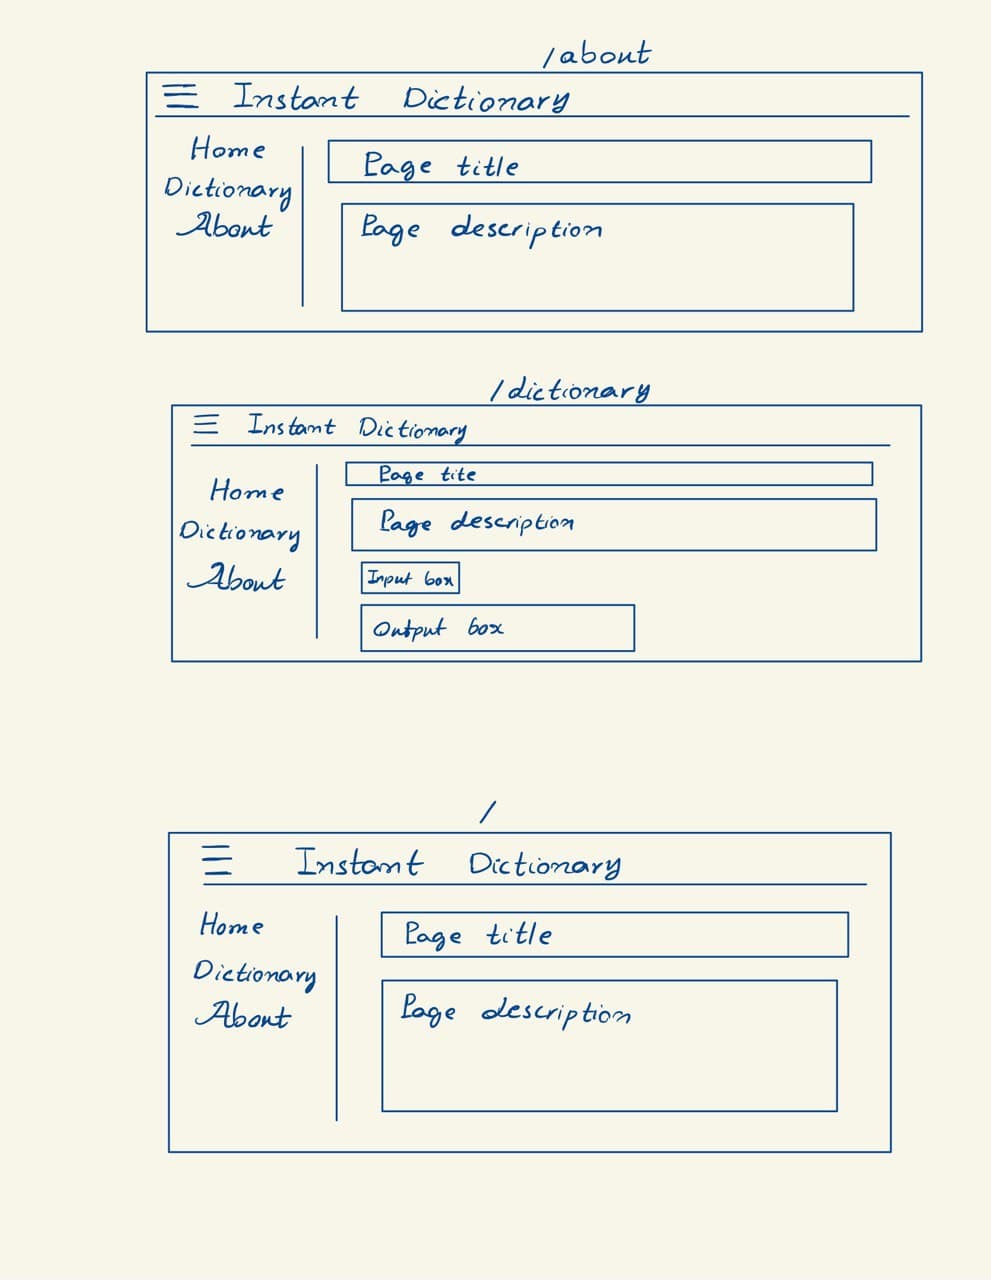 /about
Instant Dictionary
Home
Dictionary
About
Page title
Page description
/dictionary
Instant Dictionary
Home
Dictionary
About
Page tite
Page description
Input box
Output box
/
Instant Dictionary
Home
Dictionary
About
Page title
Page description